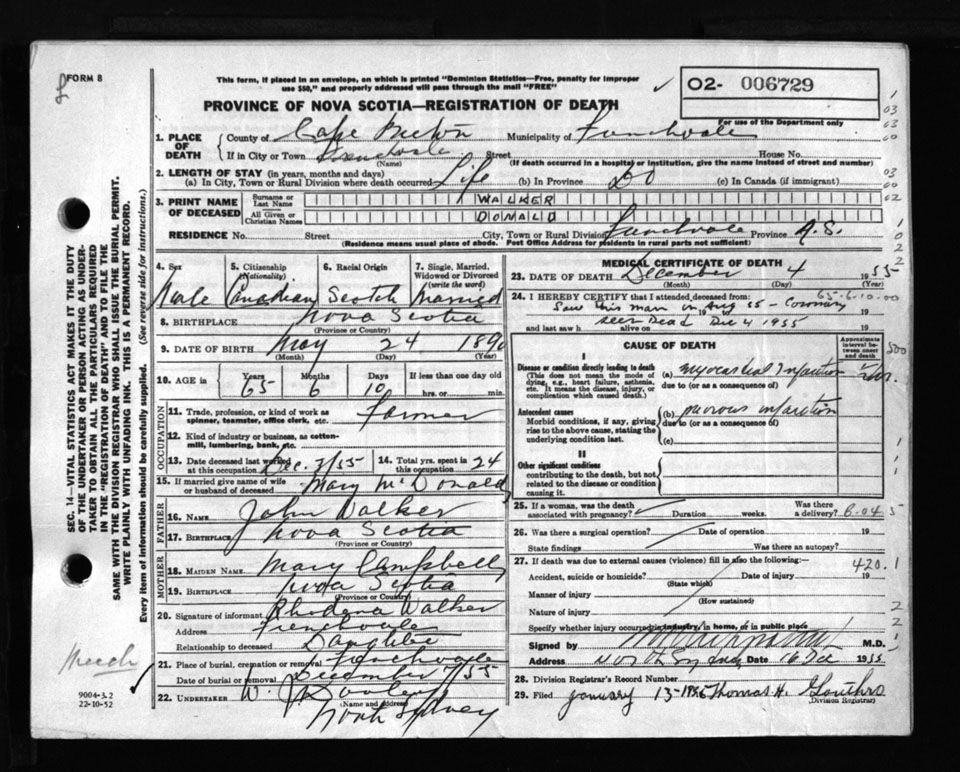 FORM 8
This form, if placed in an envelope, on which is printed "Dominion Statistics—Free, penalty for improper
use $50," and properly addressed will pass through the mail "FREE"
PROVINCE OF NOVA SCOTIA—REGISTRATION OF DEATH
O2- 006729
For use of the Department only
1. PLACE OF DEATH County of Cape Breton Municipality of Frenchvale
If in City or Town Frenchvale Street House No.
(Name) (If death occurred in a hospital or institution, give the name instead of street and number)
2. LENGTH OF STAY (in years, months and days)
(a) In City, Town or Rural Division where death occurred Life (b) In Province Do (c) In Canada (if immigrant)
3. PRINT NAME OF DECEASED Surname or Last Name WALKER
All Given or Christian Names DONALD
RESIDENCE No. Street City, Town or Rural Division Frenchvale Province N.S.
(Residence means usual place of abode. Post Office Address for residents in rural parts not sufficient)
4. Sex Male
5. Citizenship (Nationality) Canadian
6. Racial Origin Scotch
7. Single, Married, Widowed or Divorced (write the word) Married
8. BIRTHPLACE Nova Scotia
(Province or Country)
9. DATE OF BIRTH May 24 1890
(Month) (Day) (Year)
10. AGE in Years Months Days If less than one day old
65 6 10 hrs. or min.
OCCUPATION
11. Trade, profession, or kind of work as spinner, teamster, office clerk, etc. Farmer
12. Kind of industry or business, as cotton-mill, lumbering, bank, etc.
13. Date deceased last worked at this occupation Dec. 3/55
14. Total yrs. spent in this occupation 24
15. If married give name of wife or husband of deceased Mary McDonald
FATHER
16. NAME John Walker
17. BIRTHPLACE Nova Scotia
(Province or Country)
MOTHER
18. MAIDEN NAME Mary Campbell
19. BIRTHPLACE Nova Scotia
(Province or Country)
20. Signature of informant Rhodena Walker
Address Frenchvale
Relationship to deceased Daughter
21. Place of burial, cremation or removal Frenchvale
Date of burial or removal December 7/55
22. UNDERTAKER W. J. Dooley
(Name and address)
North Sydney
MEDICAL CERTIFICATE OF DEATH
23. DATE OF DEATH December 4 1955
(Month) (Day) (Year)
65-6-10.00
24. I HEREBY CERTIFY that I attended deceased from:
Saw this man in Aug 55 - Coronary
19 to 19
and last saw h alive on 19
seen Dead Dec 4 1955
CAUSE OF DEATH
Approximate interval between onset and death
I
Disease or condition directly leading to death
(This does not mean the mode of dying, e.g., heart failure, asthenia, etc. It means the disease, injury, or complication which caused death.)
(a) myocardial Infarction
due to (or as a consequence of)
Antecedent causes
Morbid conditions, if any, giving rise to the above cause, stating the underlying condition last.
(b) previous infarction
due to (or as a consequence of)
(c)
II
Other significant conditions
contributing to the death, but not related to the disease or condition causing it.
25. If a woman, was the death associated with pregnancy? Duration weeks. Was there a delivery?
6-04 5
26. Was there a surgical operation? Date of operation 19
State findings Was there an autopsy?
27. If death was due to external causes (violence) fill in also the following:
420.1
Accident, suicide or homicide? Date of injury 19
(State which)
Manner of injury
(How sustained)
Nature of injury
Specify whether injury occurred in industry, in home, or in public place
Signed by M.D.
Address North Sydney Date 16 Dec 1955
28. Division Registrar's Record Number
29. Filed January 13-1956 Thomas H. Gouthro
(Division Registrar)
SEC. 14—VITAL STATISTICS ACT MAKES IT THE DUTY
OF THE UNDERTAKER OR PERSON ACTING AS UNDER-
TAKER TO OBTAIN ALL THE PARTICULARS REQUIRED
IN THE "REGISTRATION OF DEATH" AND TO FILE THE
SAME WITH THE DIVISION REGISTRAR WHO SHALL ISSUE THE BURIAL PERMIT.
WRITE PLAINLY WITH UNFADING INK. THIS IS A PERMANENT RECORD.
Every item of information should be carefully supplied. (See reverse side for instructions.)
9004-3.2
22-10-52